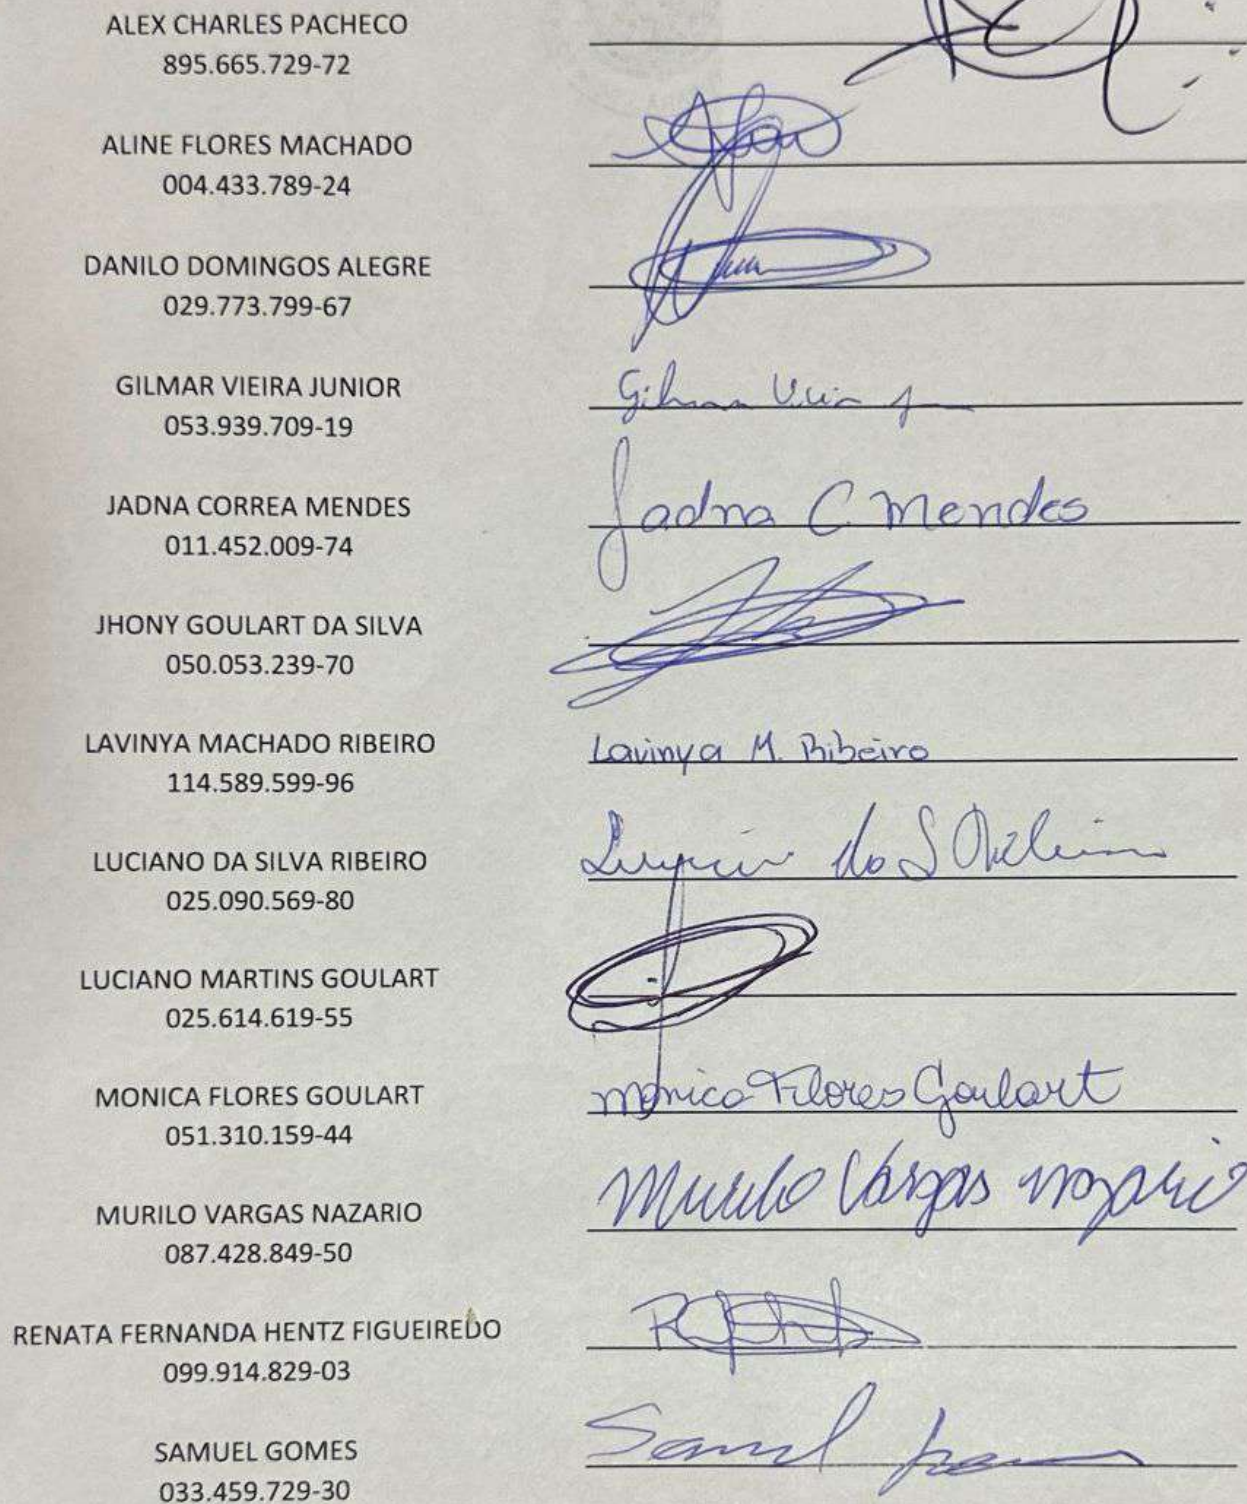 ALEX CHARLES PACHECO
895.665.729-72
ALINE FLORES MACHADO
004.433.789-24
DANILO DOMINGOS ALEGRE
029.773.799-67
GILMAR VIEIRA JUNIOR
053.939.709-19
Gilmar Vieira
JADNA CORREA MENDES
011.452.009-74
Jadna C. Mendes
JHONY GOULART DA SILVA
050.053.239-70
LAVINYA MACHADO RIBEIRO
114.589.599-96
Lavinya M. Ribeiro
LUCIANO DA SILVA RIBEIRO
025.090.569-80
LUCIANO MARTINS GOULART
025.614.619-55
MONICA FLORES GOULART
051.310.159-44
Monica Flores Goulart
MURILO VARGAS NAZARIO
087.428.849-50
Murilo Vargas Nazario
RENATA FERNANDA HENTZ FIGUEIREDO
099.914.829-03
SAMUEL GOMES
033.459.729-30
Samuel